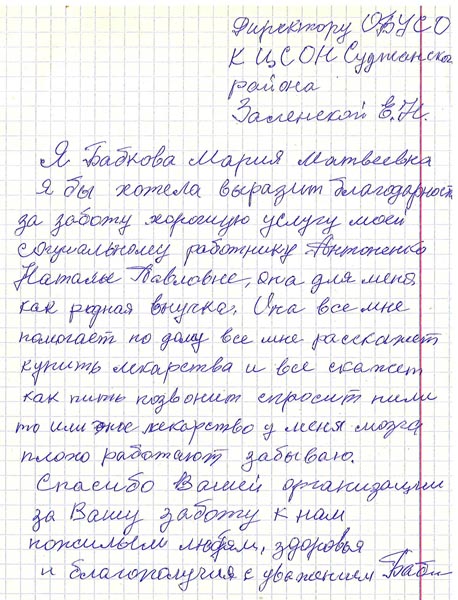 Директору ОБУСО
КЦСОН Суджанского
района
Засленской Е.Н.
Я Бабкова Мария Матвеевна
я бы хотела выразит благодарност
за заботу хорошую услугу моей
социальному работнику Антоненко
Наталье Павловне, она для меня
как родная внучка. Она все мне
помогает по дому все мне расскажет
купить лекарства и все скажет
как пить позвонит спросит пили
то или иное лекарство у меня мозга
плохо работают забываю.
Спасибо Вашей организации
за Вашу заботу к нам
пожилым людям, здоровья
и благополучия с уважением Бабк